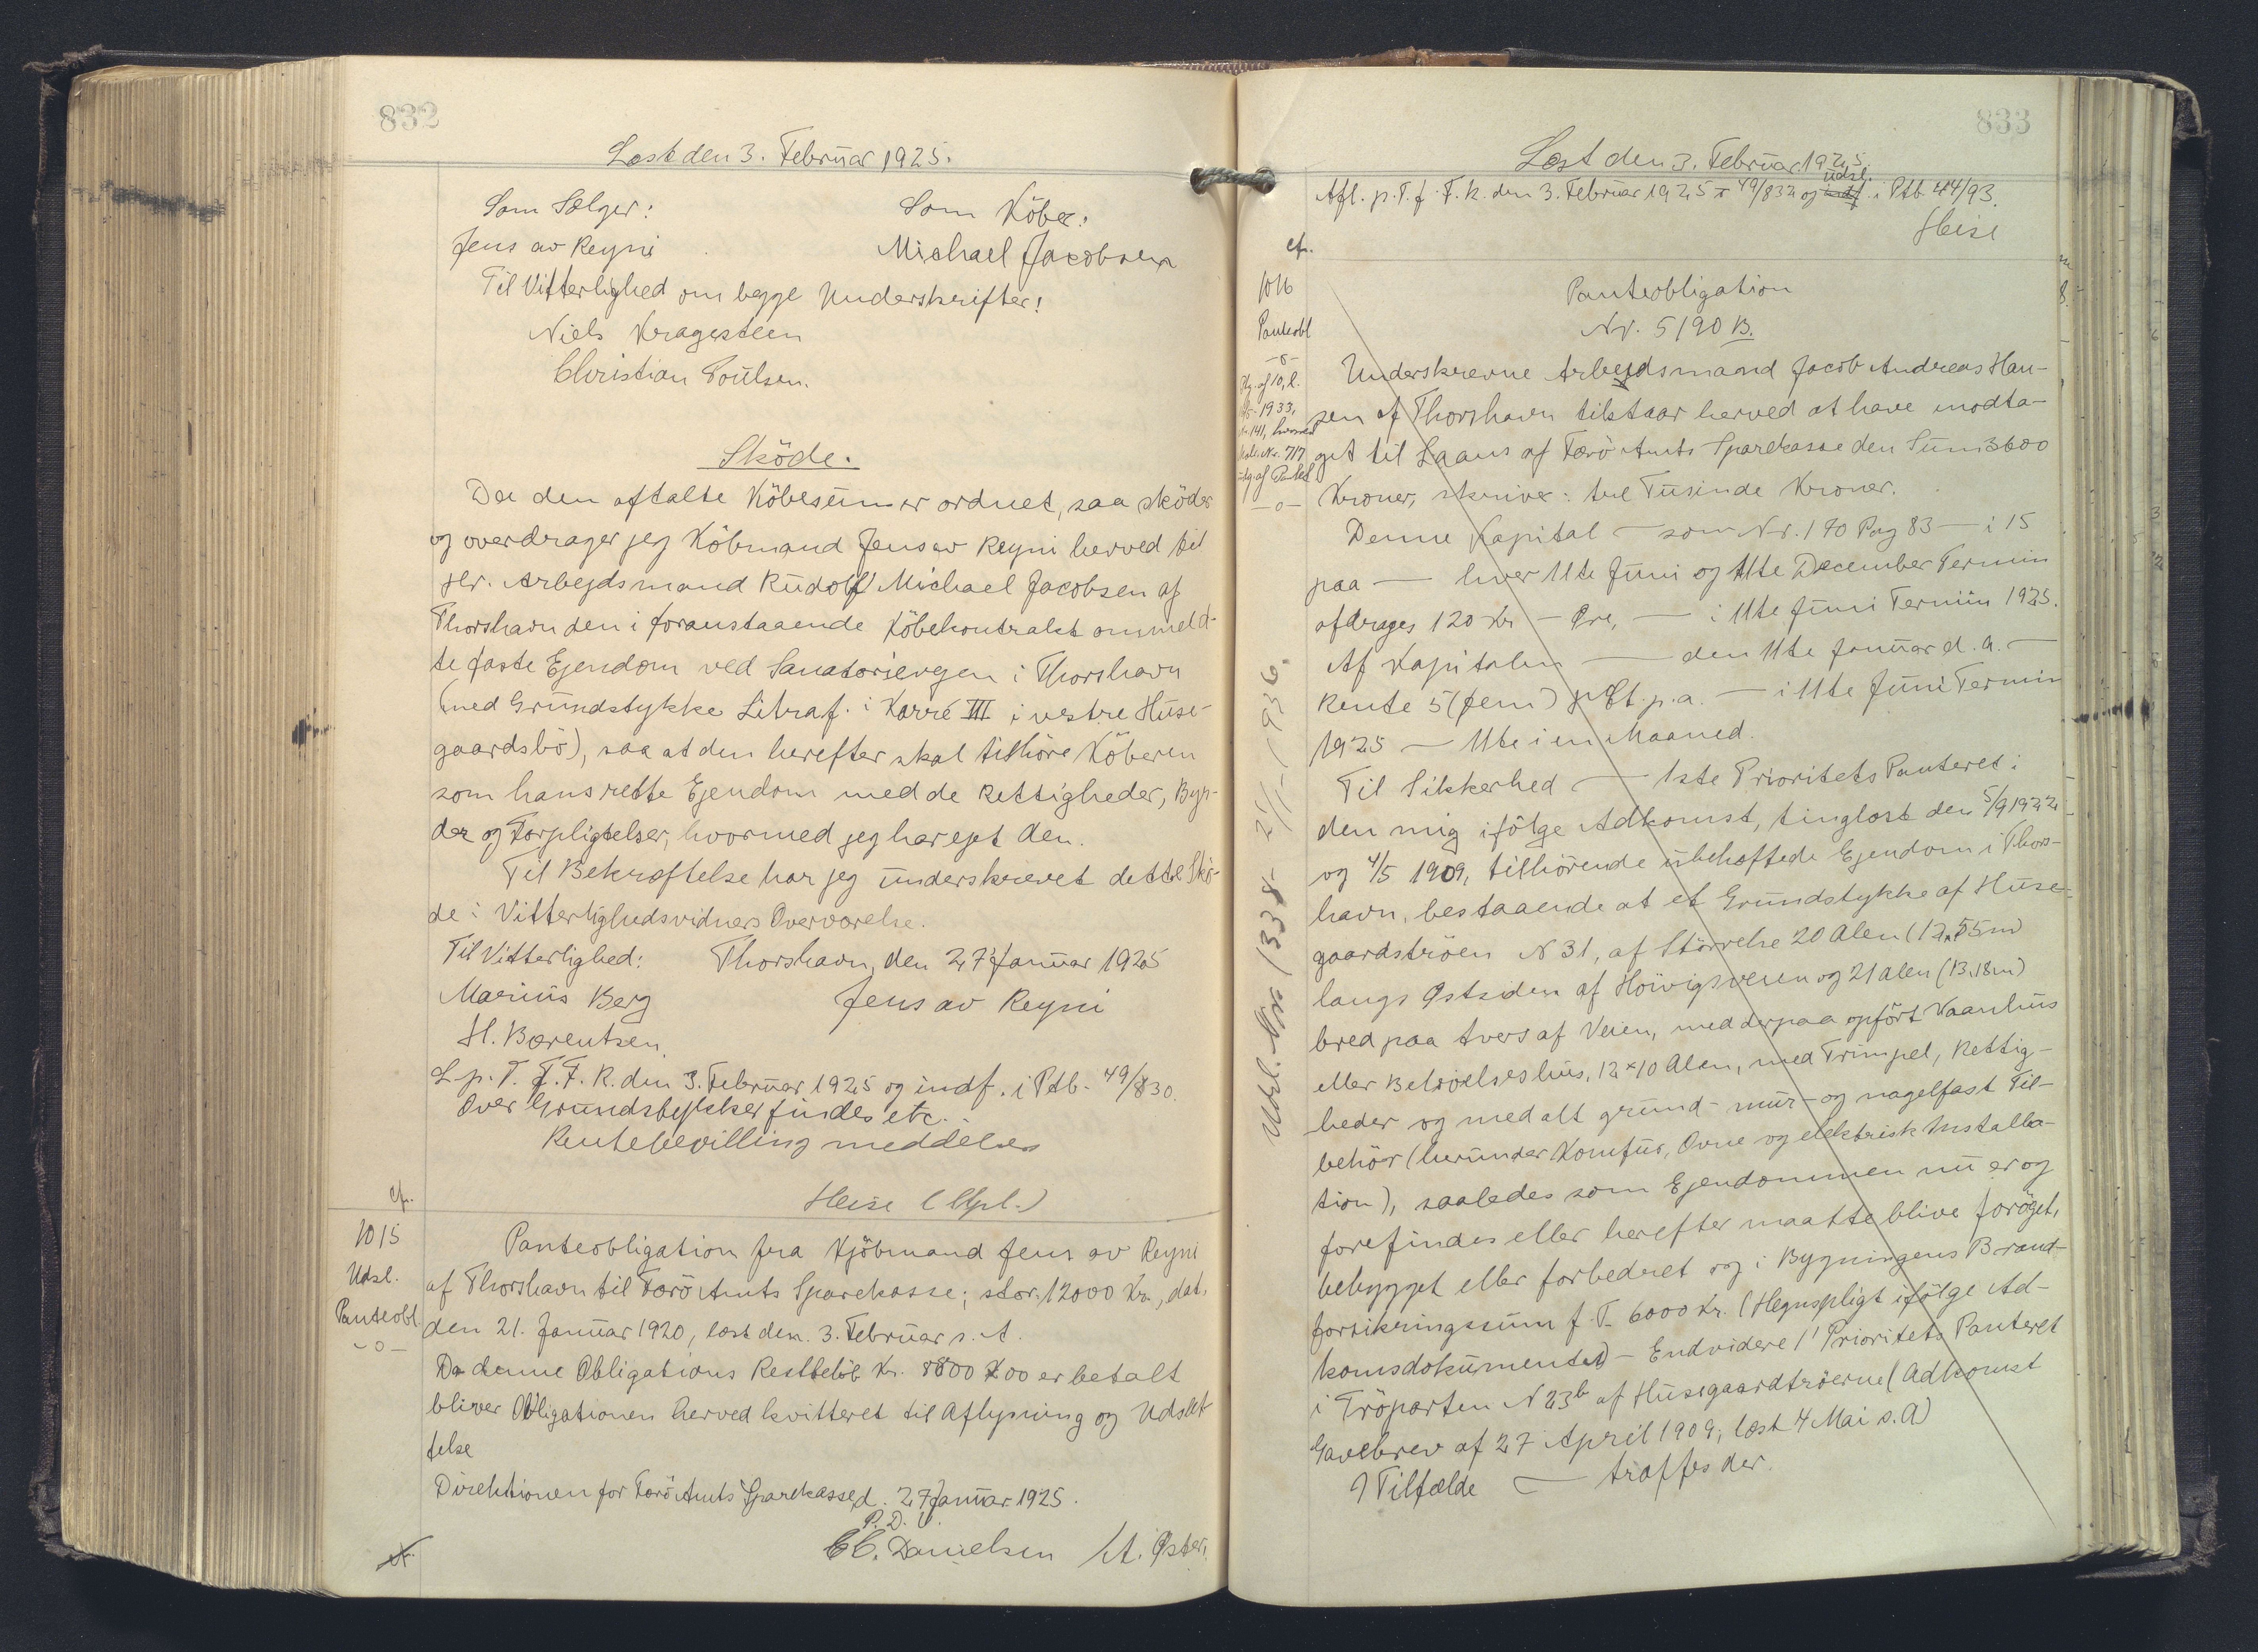 832
Læst den 3. Februar 1925.
Som Sælger: Som Köber:
Jens av Reyni Michael Jacobsen
Til Vitterlighed om begge Underskrifter!
Niels Kragesteen
Christian Poulsen.
Sköde.
Da den aftalte Köbesum er ordnet, saa sköder
og overdrager jeg Köbmand Jens av Reyni herved til
Hr. Arbejdsmand Rudolf Michael Jacobsen af
Thorshavn den i foranstaaende Köbekontrakt ommeld-
te faste Ejendom ved Sanatorievegen i Thorshavn
(med Grundstykke Litra f. i Karré III i vestre Huse-
gaardsbö), saa at den herefter skal tilhöre Köberen
som hans rette Ejendom med de Rettigheder, Byr-
der og Forpligtelser, hvormed jeg har ejet den.
Til Bekræftelse har jeg underskrevet dette Skö-
de i Vitterlighedsvidners Overværelse.
Til Vitterlighed: Thorshavn, den 27 Januar 1925
Marius Berg Jens av Reyni
H. Bærentsen
L. p. T. f. F. K. den 3. Februar 1925 og indf. i Ptb. 49/830.
Over Grundstykker findes etc.
Rentebevilling meddeles
Heise (Mpl.)
cfr.
1015
Udsl.
Panteobl.
-o-
Panteobligation fra Kjöbmand Jens av Reyni
af Thorshavn til Færö Amts Sparekasse; stor 12000 Kr., dat.
den 21. Januar 1920, læst den 3. Februar s. A.
Da denne Obligations Restbelöb Kr. 8800 00 er betalt
bliver Obligationen herved kvitteret til Aflysning og Udslet
telse
Direktionen for Færö Amts Sparekasse d. 27 Januar 1925.
P. D. V.
C. C. Danielsen A. Öster.
833
Læst den 3. Februar 1925.
udsl.
Afl. p. T. f. F. K. den 3. Februar 1925 49/832 og indf. i Ptb 44/93.
Heise
cfr.
1016
Panteobl
-o-
1933,
Nr. 141, hvorved
Matr. Nr. 717
udg. af Pantet
-o-
Panteobligation
Nr. 5190 B.
Underskrevne Arbejdsmand Jacob Andreas Han-
sen af Thorshavn tilstaar herved at have modta-
get til Laans af Færö Amts Sparekasse den Sum 3600
Kroner, skriver: tre Tusinde Kroner.
Denne Kapital — som Nr. 170 Pag 83 — i 15
paa — hver 11te Juni og 11te December Termin
afdrages 120 Kr — Øre, — i 11te Juni Termin 1925.
Af Kapitalen — den 11te Januar d. A. —
Rente 5 (fem) pCt. p.a. — i 11te Juni Termin
1925 — 11te i en Maaned.
Til Sikkerhed — 1ste Prioritets Panteret i
den mig ifölge Adkomst, tinglæst den 5/9 1922
og 4/5 1909, tilhörende ubehæftede Ejendom i Thors-
havn, bestaaende at et Grundstykke af Huse-
gaardströen N 31, af Störrelse 20 Alen (12,55 m)
langs Østsiden af Hoivigsveien og 21 alen (13.18 m)
bred paa tvers af Veien, med derpaa opfört Vaanhus
eller Beboelseshus, 12 x 10 Alen, med Trumpel, Rettig-
heder og med alt grund- mur- og nagelfast Til-
behör (herunder Komfur, Ovne og elektrisk Installa-
tion), saaledes som Ejendommen nu er og
forefindes eller herefter maatte blive foröget,
bebygget eller forbedret og i Bygningens Brand-
forsikringssum f. T. 6000 Kr. (Hegnspligt ifölge Ad-
komsdokumentet) — Endvidere 1' Prioritets Panteret
i Tröparten N 23b af Husegaardtröerne (Adkomst
Gavebrev af 27 April 1909, læst 4 Mai s. A)
I Tilfælde — træffes der.